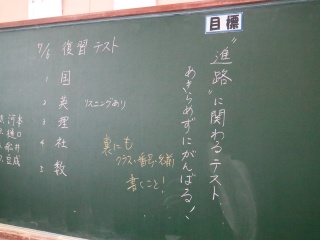 目標
"進路"に関わるテスト
あきらめずにがんばる!
7/6 復習テスト
1 国
2 英 リスニングあり
3 理
4 社
5 数
裏にも
クラス・番号・名前
書くこと!
河本
樋口